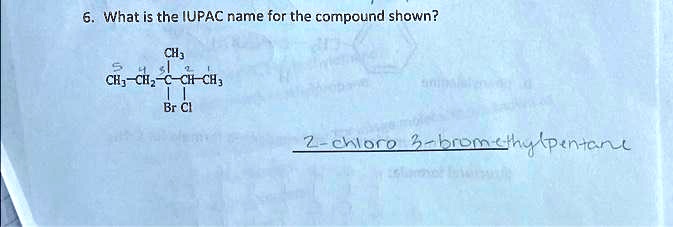 6. What is the IUPAC name for the compound shown?
CH₃
5 4 3 2 1
CH₃—CH₂—C—CH—CH₃
Br Cl
2-chloro 3-bromethylpentane